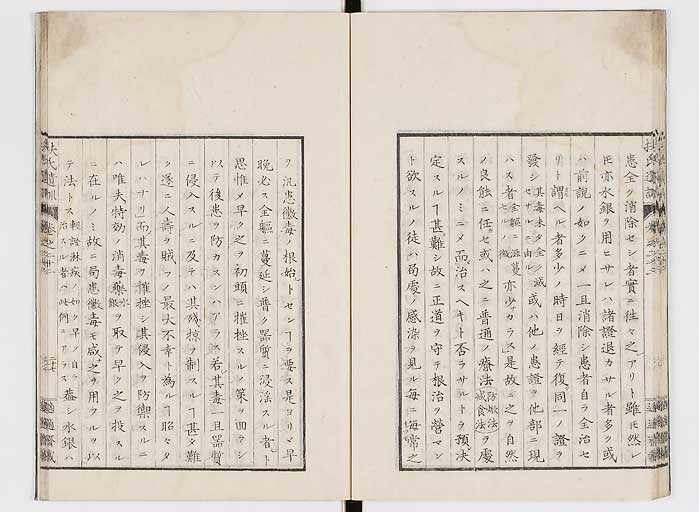 患全ク消除セシ者實ニ往々之アリト雖モ然レ
𪜈亦水銀ヲ用ヒサレハ諸證退カサル者多ク或
ハ前説ノ如クニメ一旦消除シ患者自ラ全治セ
リト謂ヘル者多少ノ時日ヲ經テ復同一ノ證ヲ
發シ其毒未タ全ク滅セサルニ由ル或ハ他ノ患證ヲ他部ニ現
ハス者全軀ニ滋蔓セルノ徴亦少カラス是故ニ之ヲ自然
ノ良能ニ任セ或ハ之ニ普通ノ療法防焮法減食法ヲ處
スルノミニメ而治スヘキト否ラサルトヲ預決
定スルヿ甚難シ故ニ正道ヲ守テ根治ヲ營マン
ト欲スルノ徒ハ局處ノ感染ヲ見ル毎ニ海常之
ヲ汎患黴毒ノ根始トセンヿヲ要ス是ヨリメ早
晩必ス全軀ニ蔓延シ普ク器質ニ浸淫スル者ト
思惟メ早ク之ヲ初頭ニ摧挫スルノ策ヲ回ラシ
以テ後患ヲ防カスンハアラス若其毒一旦器質
ニ侵入スルニ及テハ其殘掠ヲ制スルヿ甚タ難
ク遂ニ人壽ヲ賊フノ最大不幸ト為ルヿ昭々タ
レハナリ而其毒ヲ摧挫シ其侵入ヲ防禦スルニ
ハ唯夫特効ノ消毒藥水銀ヲ取テ早ク之ヲ投スル
ニ在ルノミ故ニ局患黴毒モ咸之ヲ用フルヲ以
テ法トス輕證淋疾ノ如ク早ク自ラ治スル者ハ此例ニアラス蓋シ水銀ハ